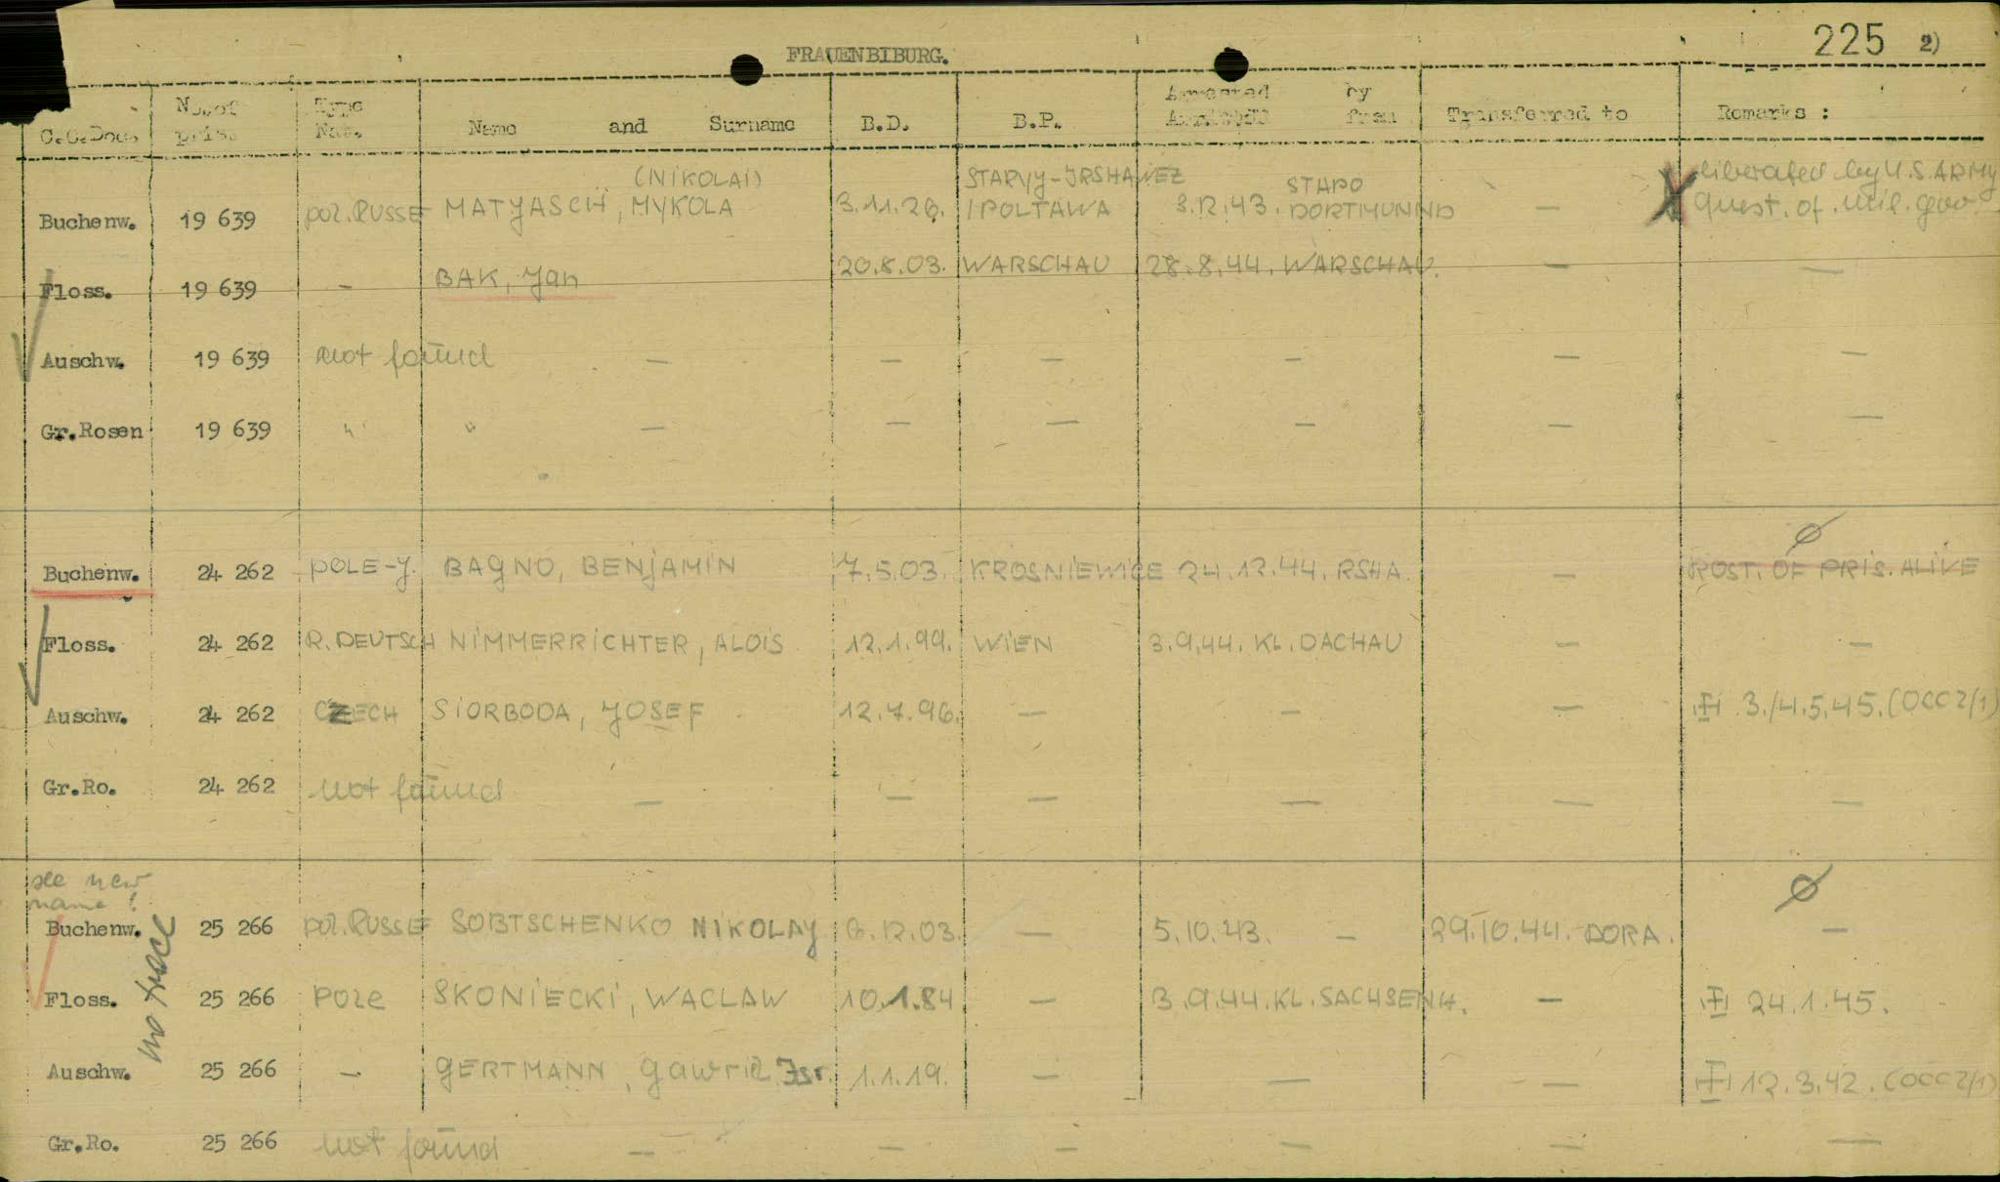 225 2)
FRAUENBIBURG.
C.C.Docs No. of pris. Type Nat. Name and Surname B.D. B.P. Arrested by from Transferred to Remarks :
(NIKOLAI) STARYJ-IRSHAWEZ STAPO liberated by U.S. ARMY
Buchenw. 19 639 pol. RUSSE MATYASCH, MYKOLA 3.11.26. / POLTAWA 3.12.43. DORTMUND — X Quest. of mil. gov.
Floss. 19 639 — BAK, Jan 20.8.03. WARSCHAU 28.8.44. WARSCHAU. — —
Auschw. 19 639 not found — — — — — —
Gr.Rosen 19 639 " " — — — — — —
Buchenw. 24 262 POLE-J. BAGNO, BENJAMIN 7.5.03. KROSNIEWICE 24.12.44. RSHA. — POST. OF PRIS. ALIVE
Floss. 24 262 R.DEUTSCH NIMMERRICHTER, ALOIS 12.1.99. WIEN 3.9.44. KL. DACHAU — —
Auschw. 24 262 CZECH SIORBODA, JOSEF 12.7.96. — — — 3./4.5.45. (OCC 2/1)
Gr.Ro. 24 262 not found — — — — — —
see new
name !
Buchenw. 25 266 pol. RUSSE SOBTSCHENKO NIKOLAY 6.12.03. — 5.10.43. — 29.10.44. DORA. —
no trace
Floss. 25 266 Pole SKONIECKI, WACLAW 10.1.84 — 3.9.44. KL. SACHSENH. — 24.1.45.
Auschw. 25 266 — GERTMANN, Gawriel Isr. 1.1.19. — — — 12.3.42. (OCC 2/1)
Gr.Ro. 25 266 not found — — — — — —